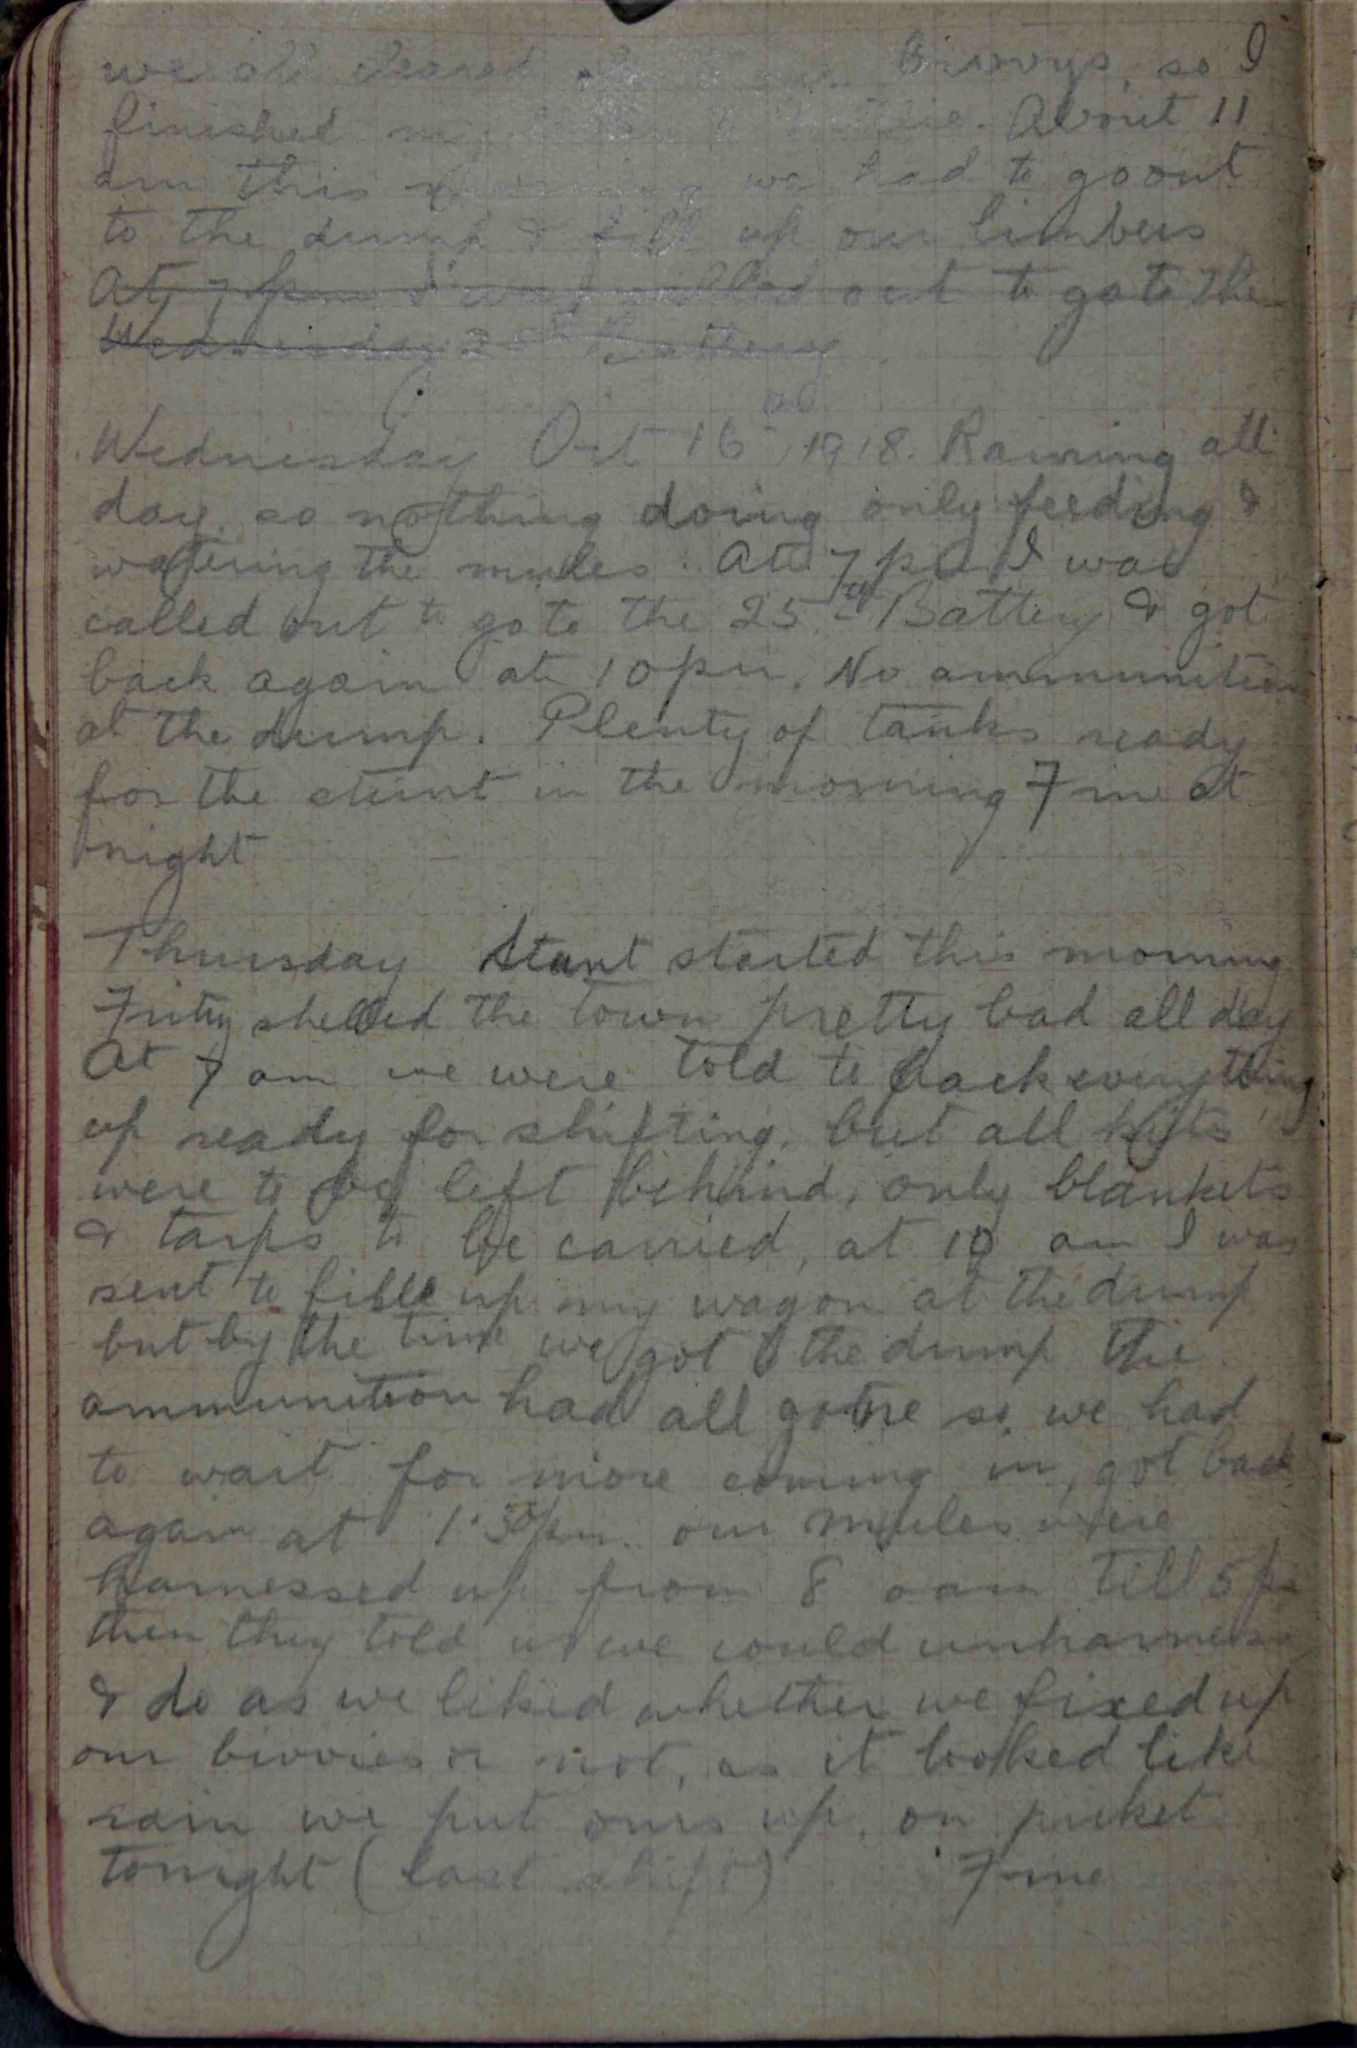 we all cleared our Bivvys, so I
finished my letter to. About 11
am this morning we had to go out
to the dump & fill up our limbers
At 7 pm I was called out to go to the
Wednesday 25th Battery
Wednesday Oct 16th 1918. Raining all
day, so nothing doing only feeding &
watering the mules. At 7 pm I was
called out to go to the 25th Battery & got
back again at 10 pm. No ammunition
at the dump. Plenty of tanks ready
for the stunt in the morning Fine at
night
Thursday Stunt started this morning
Fritz shelled the town pretty bad all day
At 7 am we were told to pack everything
up ready for shifting, but all kits
were to be left behind, only blankets
& tarps to be carried, at 10 am I was
sent to fill up my wagon at the dump
but by the time we got to the dump the
ammunition had all gone so we had
to wait for more coming in, got back
again at 1.30 pm. our mules were
harnessed up from 8 am till 5 pm
then they told us we could unharness
& do as we liked whether we fixed up
our bivvies or not, as it looked like
rain we put ours up, on picket
tonight (last shift) Fine